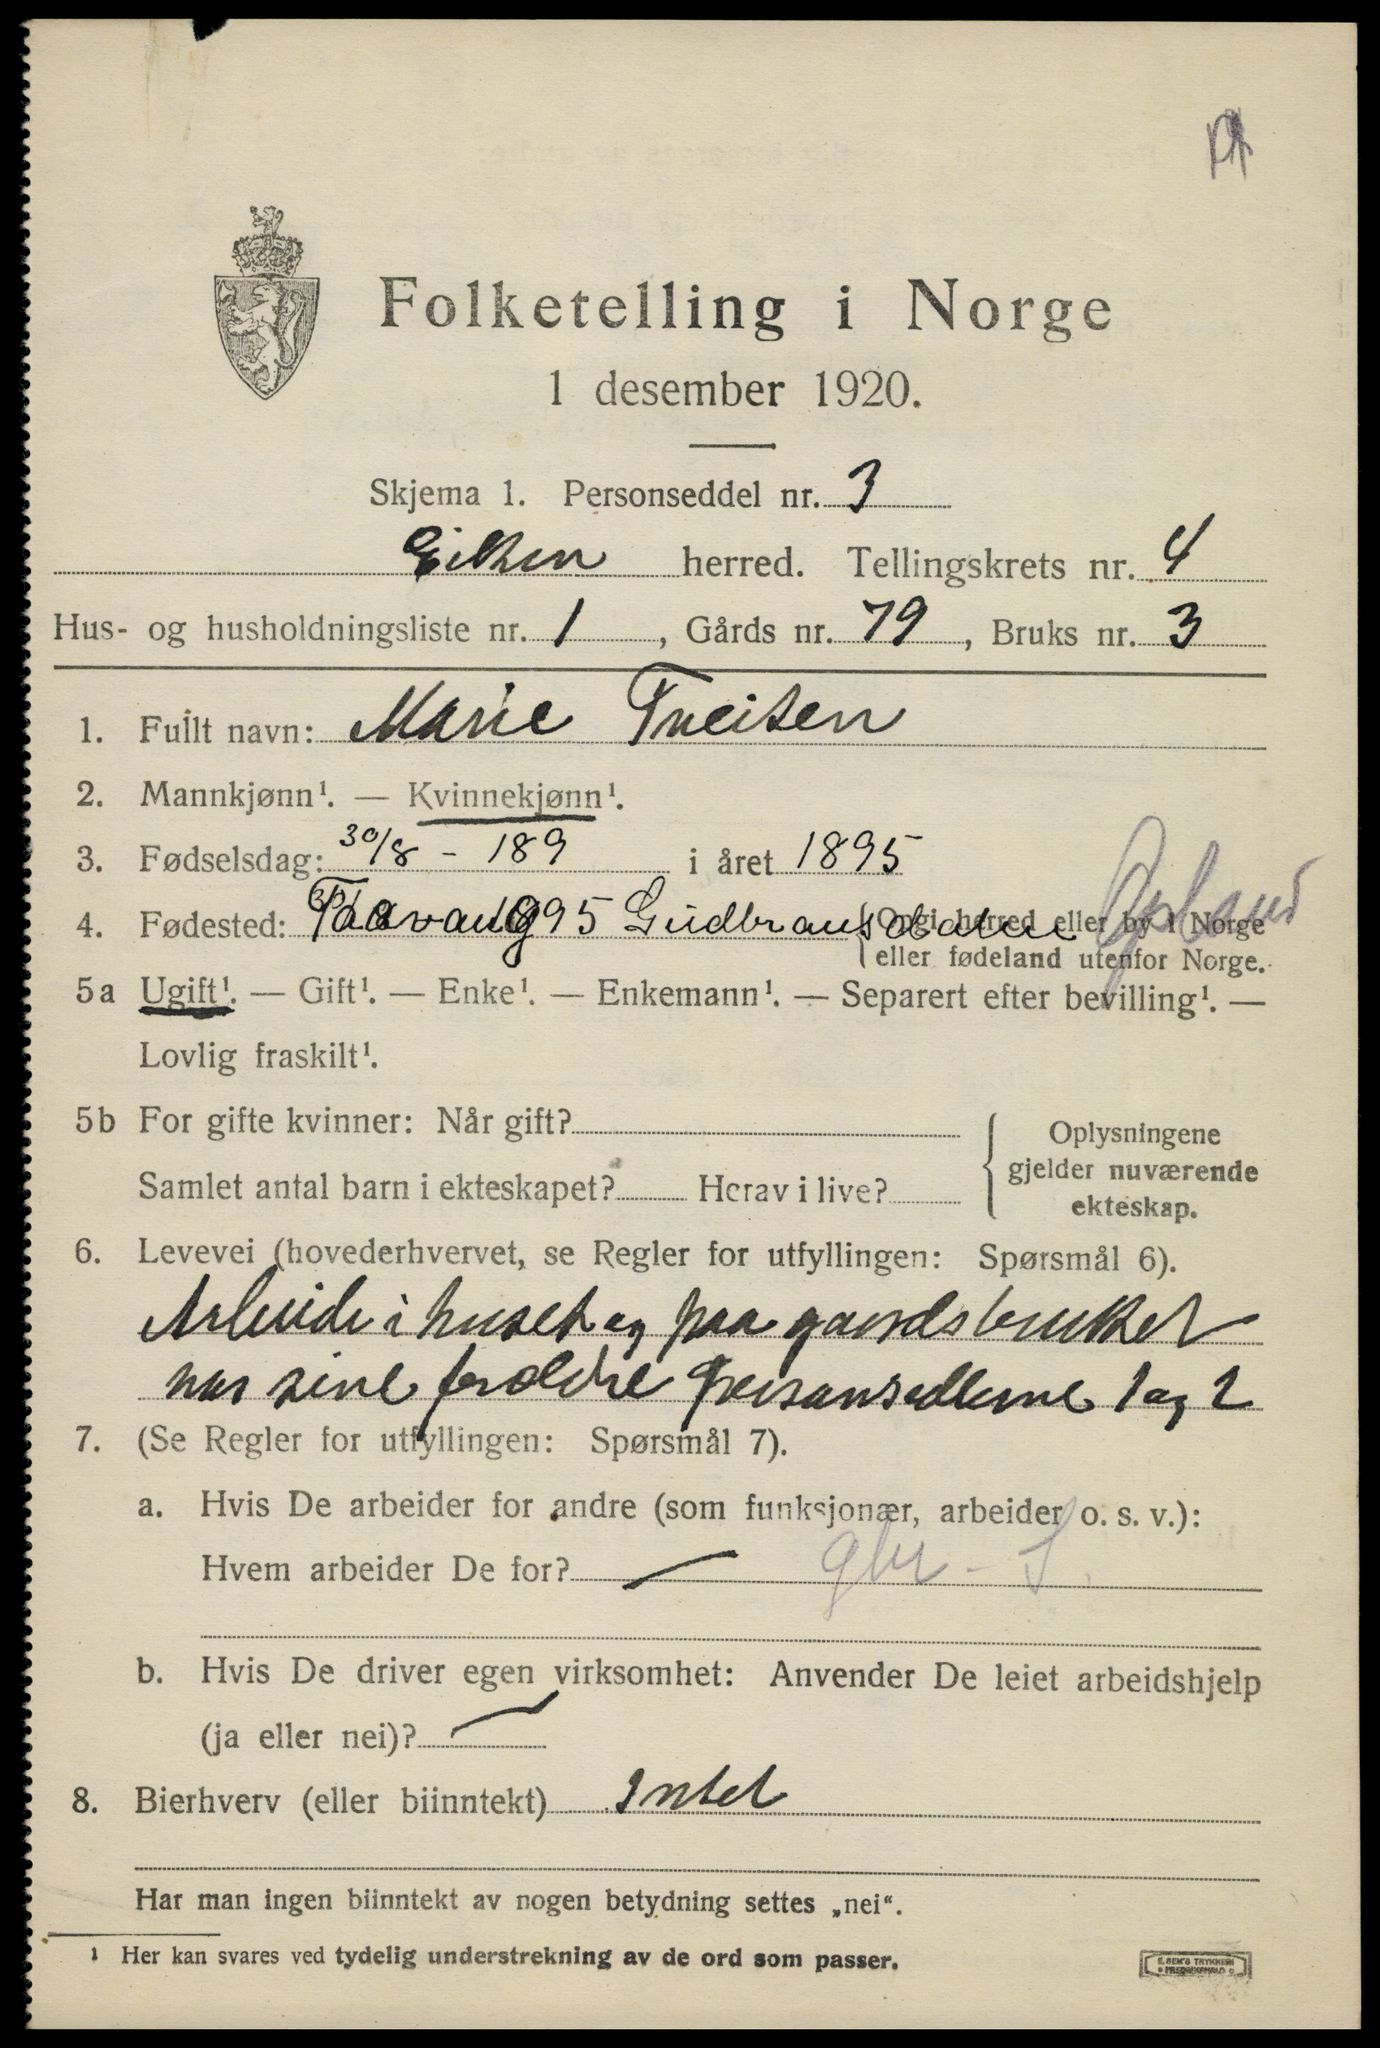 Folketelling i Norge
1 desember 1920.
Skjema 1. Personseddel nr. 3
Eiken herred. Tellingskrets nr. 4
Hus- og husholdningsliste nr. 1, Gårds nr. 79, Bruks nr. 3
1. Fullt navn: Marie Tveiten
2. Mannkjønn¹. — Kvinnekjønn¹.
3. Fødselsdag: 30/8 - 189 i året 1895
4. Fødested: Gudbransdalen (Opgi herred eller by i Norge
eller fødeland utenfor Norge.
5a Ugift¹. — Gift¹. — Enke¹. — Enkemann¹. — Separert efter bevilling¹. —
Lovlig fraskilt¹.
5b For gifte kvinner: Når gift?
Samlet antal barn i ekteskapet? Herav i live?
Oplysningene
gjelder nuværende
ekteskap.
6. Levevei (hovederhvervet, se Regler for utfyllingen: Spørsmål 6).
Arbeide i huset og paa gaardsbruket
hos sine foreldre Personsedlerne 1 og 2
7. (Se Regler for utfyllingen: Spørsmål 7).
a. Hvis De arbeider for andre (som funksjonær, arbeider o. s. v.):
Hvem arbeider De for? —
b. Hvis De driver egen virksomhet: Anvender De leiet arbeidshjelp
(ja eller nei)? —
8. Bierhverv (eller biinntekt) Intet
Har man ingen biinntekt av nogen betydning settes „nei“.
¹ Her kan svares ved tydelig understrekning av de ord som passer.
E. SEM'S TRYKKERI
FREDRIKSHALD